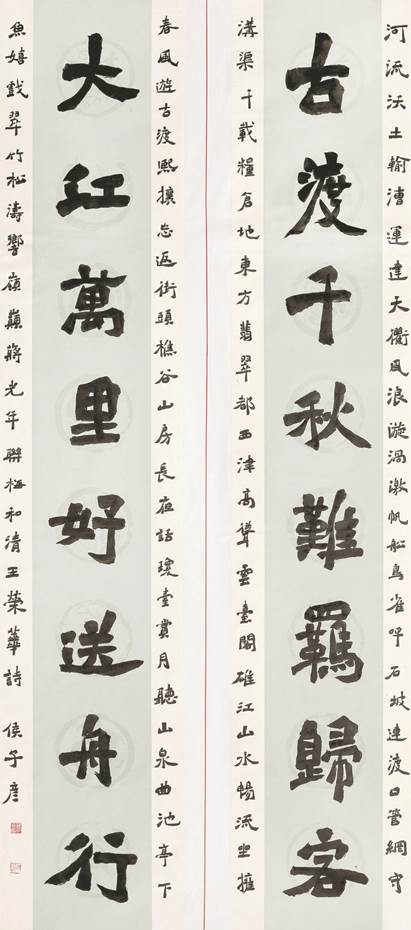 古渡千秋難羈歸客
大江萬里好送舟行
河流沃土輸漕運達天衢風浪漩渦激帆船鳥雀呼石坡連渡口管網守
溝渠千載糧倉地東方翡翠都西津高聳雲臺閣碓江山水暢流坐擁
春風遊古渡熙攘忘返街頭樵谷山房長夜話瓊臺賞月聽山泉曲池亭下
魚嬉戲翠竹松濤響嶺巔蔣光年聯極和清王榮華詩 侯子彥